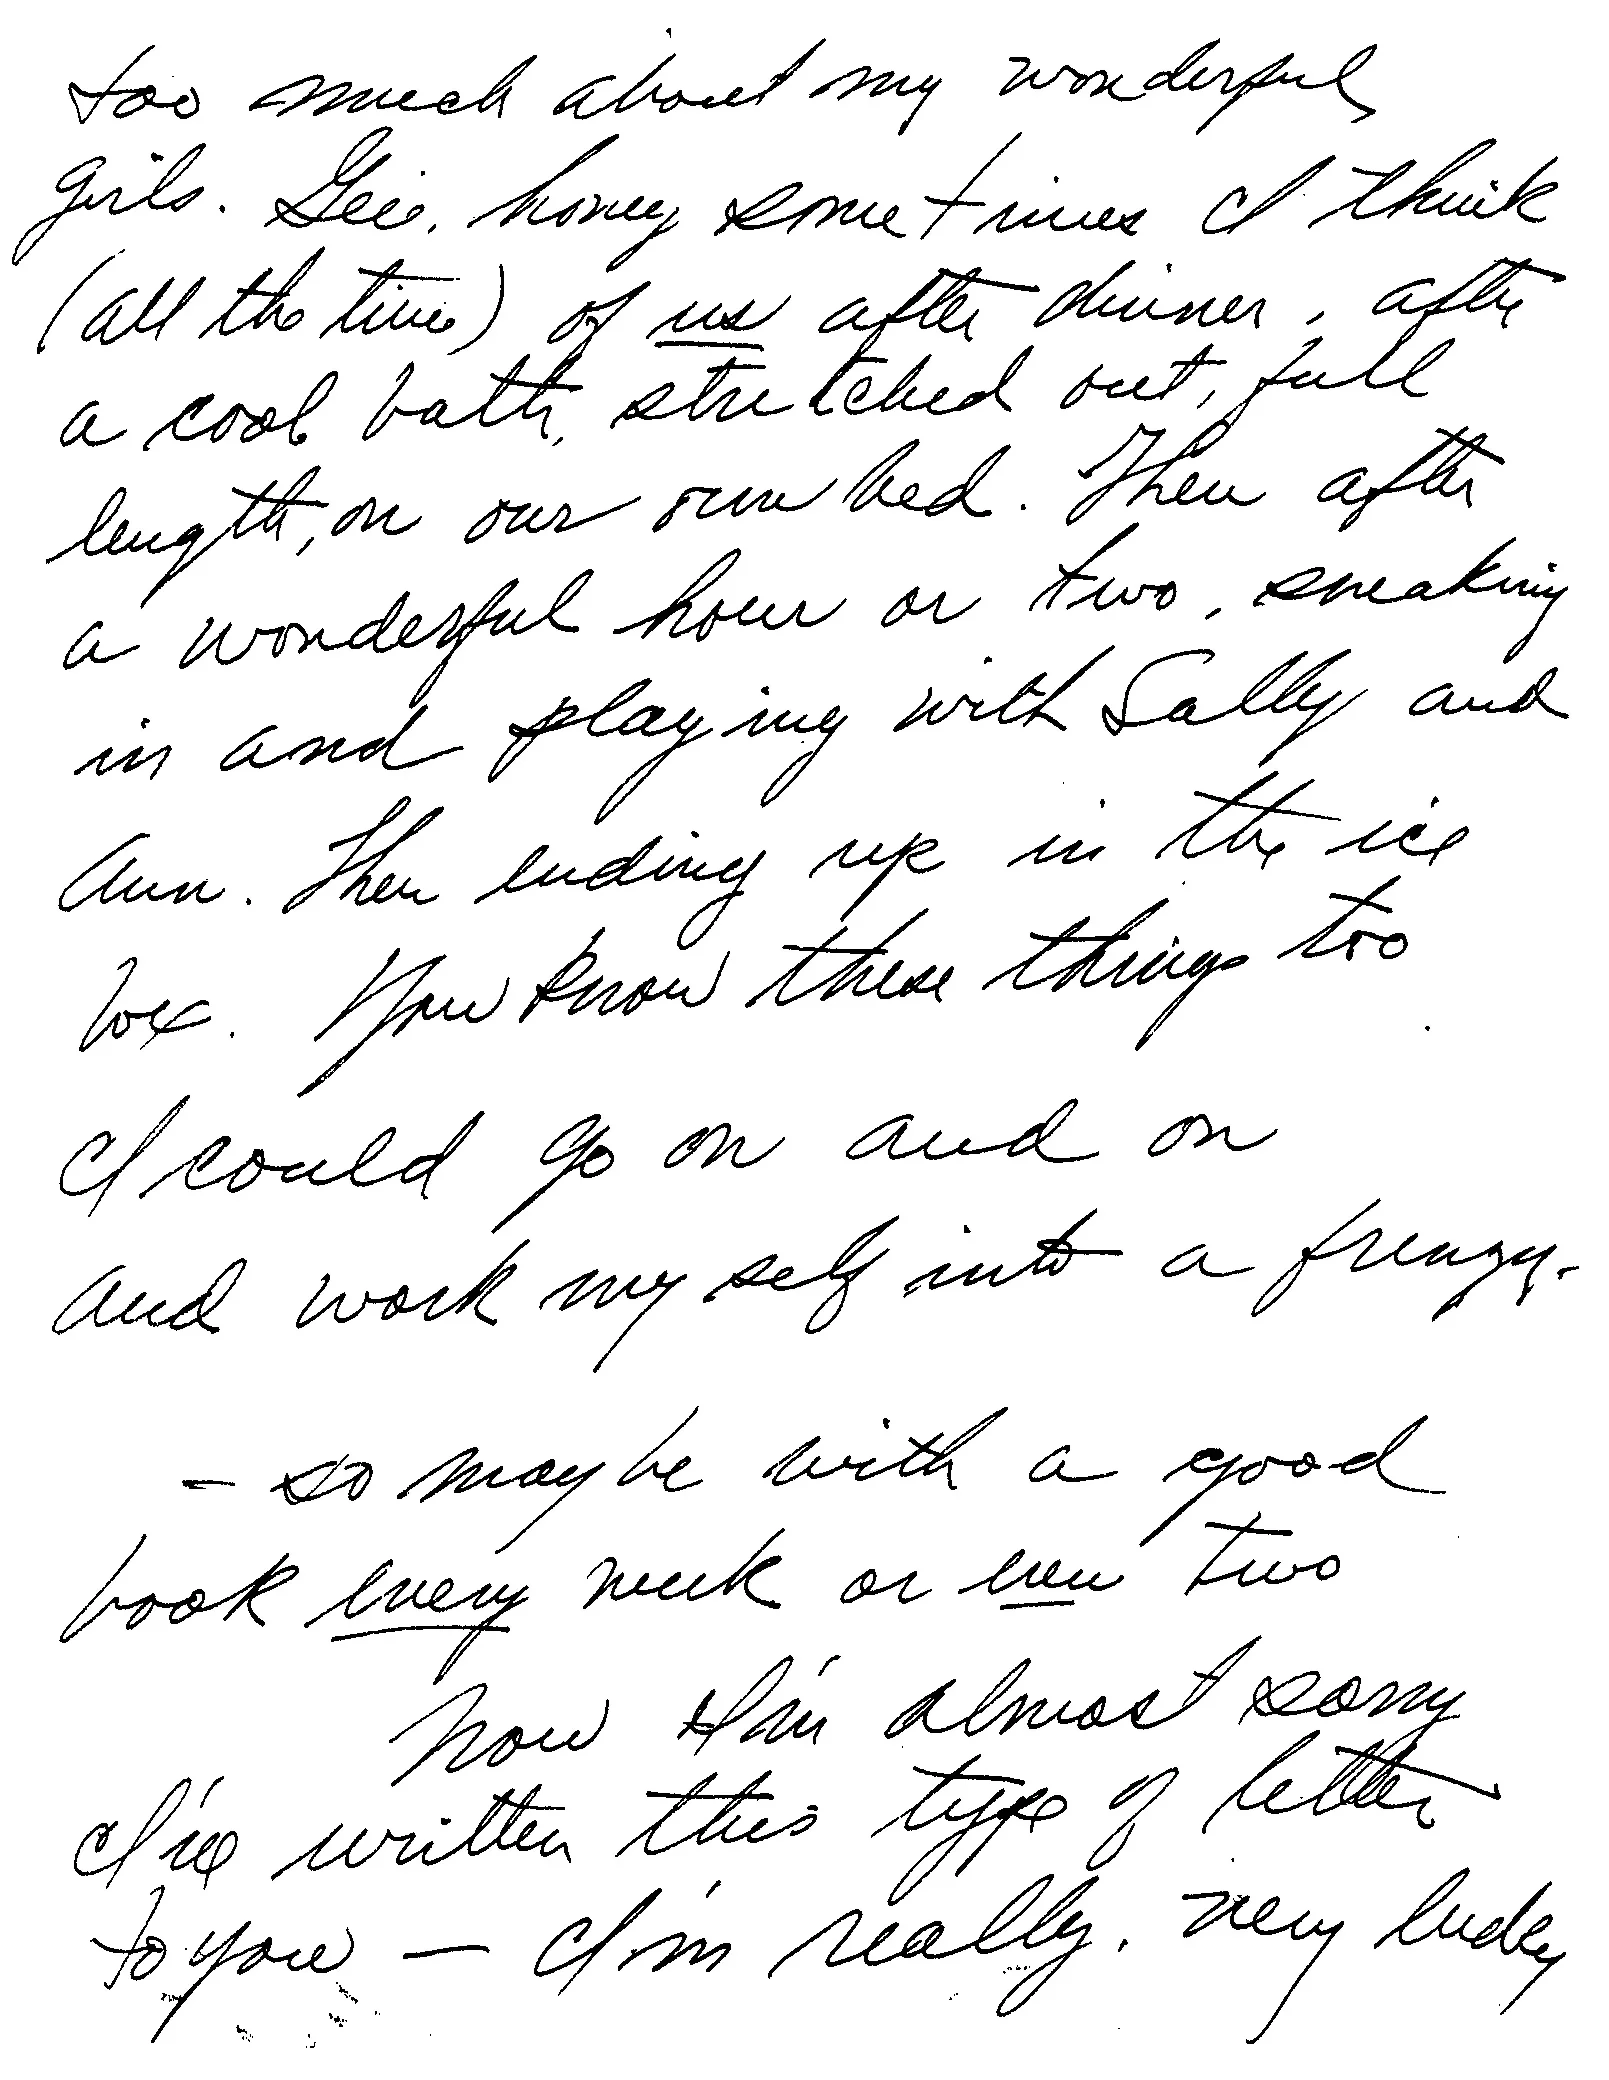 too much about my wonderful
girls. Gee, honey sometimes I think
(all the time) of us after dinner, after
a cool bath, stretched out, full
length, on our own bed. Then after
a wonderful hour or two, sneaking
in and playing with Sally and
Ann. Then ending up in the ice
box. You know these things too
I could go on and on
and work myself into a frenzy.
- so maybe with a good
book every week or even two
Now I'm almost sorry
I've written this type of letter
to you — I'm really, very lucky